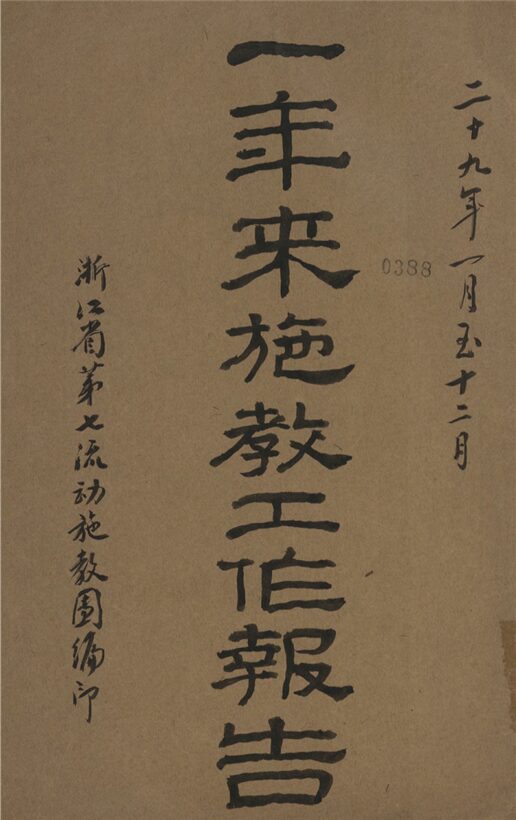 二十九年一月至十二月
0388
一年来施教工作報告
浙江省第七流动施教團编印